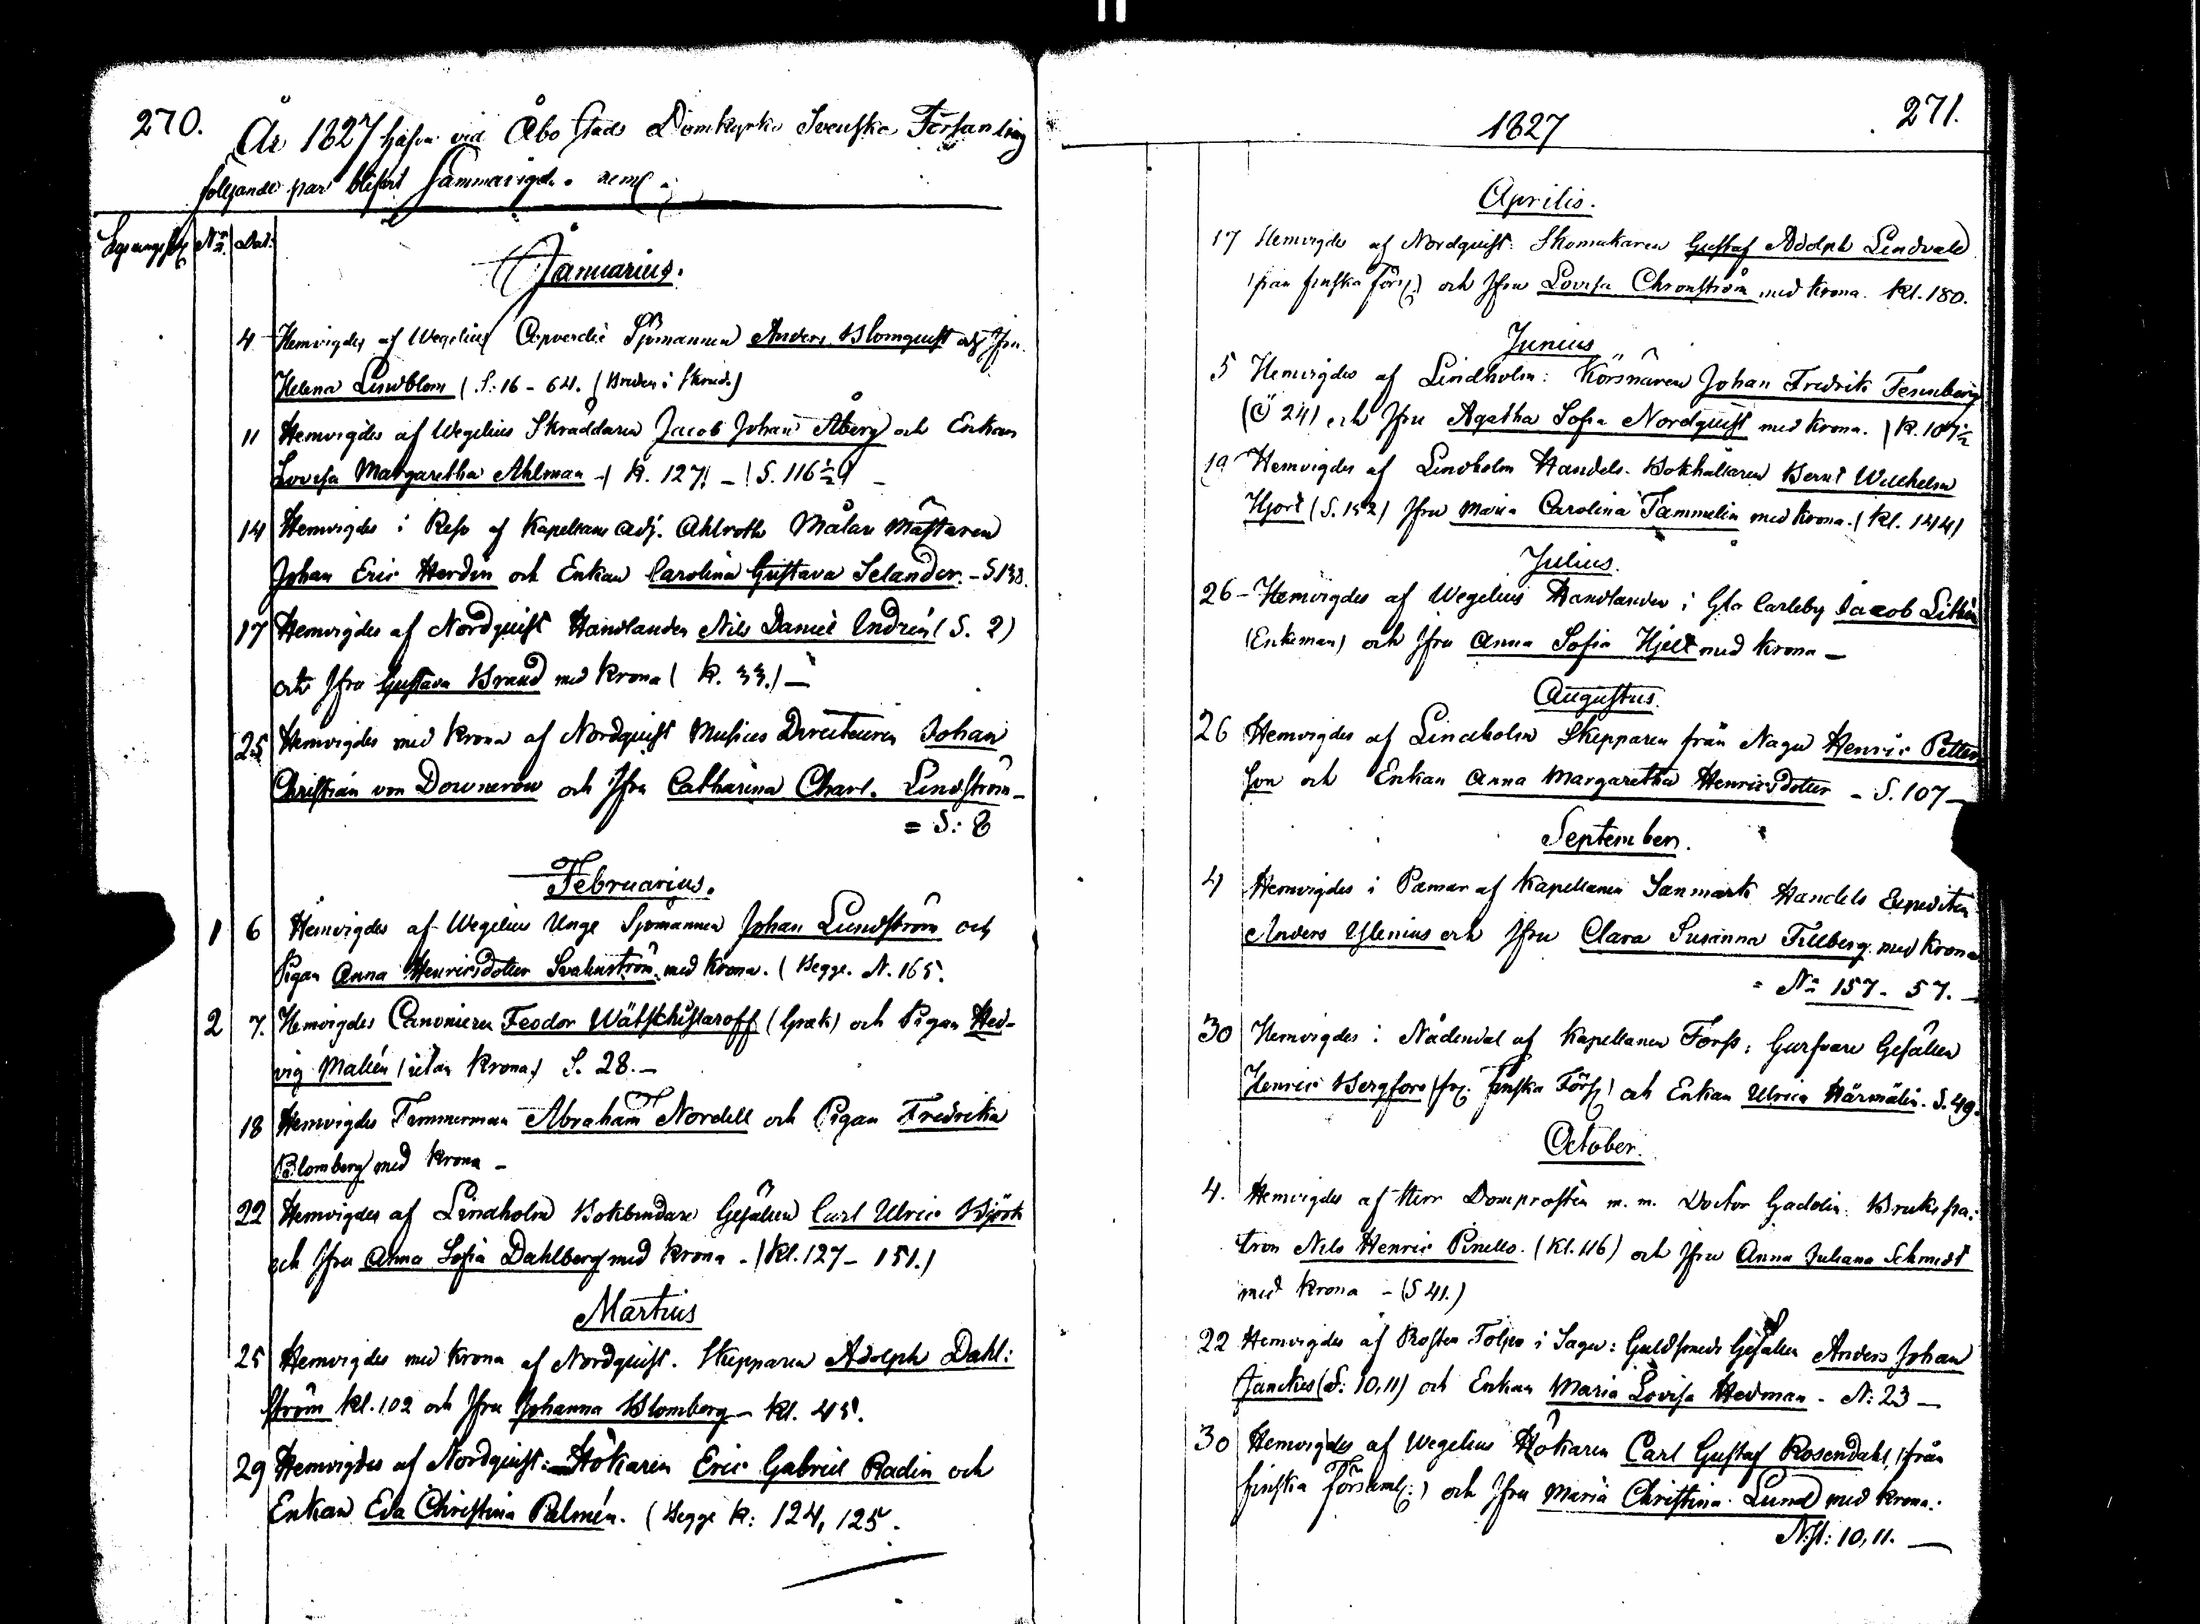 270.
År 1827 hafva vid Åbo stads Domkyrko Svenska Församling
följande par blifvit sammanvigde. neml.
No Dat:
Januarius.
4 Hemvigdes af Wegelius Sjömannen Anders Blomquist och Jfru
Helena Lindblom (S: 16 - 64.
11 Hemvigdes af Wegelius Skräddaren Jacob Johan Åberg och Enkan
Lovisa Margaretha Ahlman - ( K. 127. - S. 116 1/2)
14 Hemvigdes i Reso af Kapellans adj. Ahlroth Målare Mästaren
Johan Eric Herdin och Enkan Carolina Gustava Selander. - S 138.
17 Hemvigdes af Nordquist Handlanden Nils Daniel Indrén (S. 2)
och Jfru Gustava Brand med Krona ( K. 33.) -
25 Hemvigdes med Krona af Nordquist Musices Directeuren Johan
Christian von Downerow och Jfru Catharina Charl. Lindström -
= S: 8
Februarius.
1 6 Hemvigdes af Wegelius Unge Sjömannen Johan Lundström och
Pigan Anna Henricsdotter Svahnström med Krona. ( Begge. N. 165.
2 7. Hemvigdes Canonieren Feodor Wätschistaroff (Græk) och Pigan Hed-
vig Malén (utan Krona) S. 28. -
18 Hemvigdes Timmerman Abraham Nordell och Pigan Fredrika
Blomberg med Krona -
22 Hemvigdes af Lindholm Bokbindare Gesällen Carl Ulric Björk
och Jfru Anna Sofia Dahlberg med Krona - (Kl. 127 - 151.)
Martius
25 Hemvigdes med Krona af Nordquist. Skepparen Adolph Dahl:
ström Kl. 102 och Jfru Johanna Blomberg - Kl. 45.
29 Hemvigdes af Nordquist: Hökaren Eric Gabriel Radin och
Enkan Eva Christina Palmén. ( Begge K: 124, 125.
1827
271.
Aprilis.
17 Hemvigdes af Nordquist: Skomakaren Gustaf Adolph Lindvall
(från finska förs:) och Jfru Lovisa Chronström med Krona. Kl. 180.
Junius
5 Hemvigdes af Lindholm: Körsnären Johan Fredrik Tennberg
(Ö 24) och Jfru Agatha Sofia Nordquist med Krona. (K. 107 1/2
19 Hemvigdes af Lindholm Handels-Bokhållaren Bernt Wilhelm
Hjort (S. 152) Jfru Maria Carolina Tammelin med Krona. ( Kl. 144)
Julius.
26 - Hemvigdes af Wegelius Handlanden i Gla Carleby Jacob Lithén
(Enkeman) och Jfru Anna Sofia Hjelt med Krona -
Augustus.
26 Hemvigdes af Lindholm Skepparen från Nagu Henric Petters
son och Enkan Anna Margaretha Henricsdotter - S. 107 -
September.
4 Hemvigdes i Pemar af Kapellanen Sanmark Handels Expediten
Anders Ylenius och Jfru Clara Susanna Tillberg med Krona
= No 157 - 57. -
30 Hemvigdes i Nådendal af Kapellanen Forss: Garfvare Gesällen
Henric Bergfors (fr. finska Förs:) och Enkan Ulrica Härmälin. S. 49.
October.
4. Hemvigdes af Herr Domprosten m. m. Doctor Gadolin Brukspa:
tron Nils Henric Pinello. (Kl. 116) och Jfru Anna Juliana Schmidt
med Krona - (S 41.)
22 Hemvigdes af Prosten Tolpo i Sagu: Guldsmeds Gesällen Anders Johan
Janckes (S: 10,11) och Enkan Maria Lovisa Hedman - N: 23 -
30 Hemvigdes af Wegelius Hökaren Carl Gustaf Rosendahl (från
finska församl:) och Jfru Maria Christina Lund med Krona.
N.fl: 10, 11. -